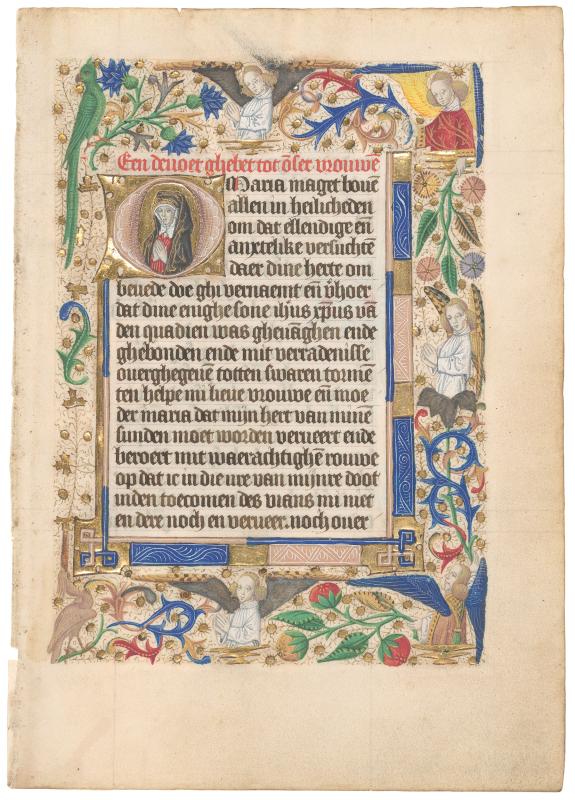 Een deuoet ghebet tot ōser vrouwē
O Maria maget bouē
allen in heilicheden
om dat ellendige eñ
anxtelike versuchtē
daer dine herte om
beuede doe ghi vernaemt eñ v̄hoer
dat dine enighe sone ih̄us xp̄us vā
den quadien was gheuāghen ende
ghebonden ende mit verradenisse
ouerghegeuē totten swaren tormē
ten helpe mi lieue vrouwe eñ moe
der maria dat mijn hert van minē
sunden moet worden verueert ende
beroert mit waerachtighē rouwe
op dat ic in die ure van mijnre doot
inden toecomen des vians mi niet
en dere noch en verueer. noch ouer